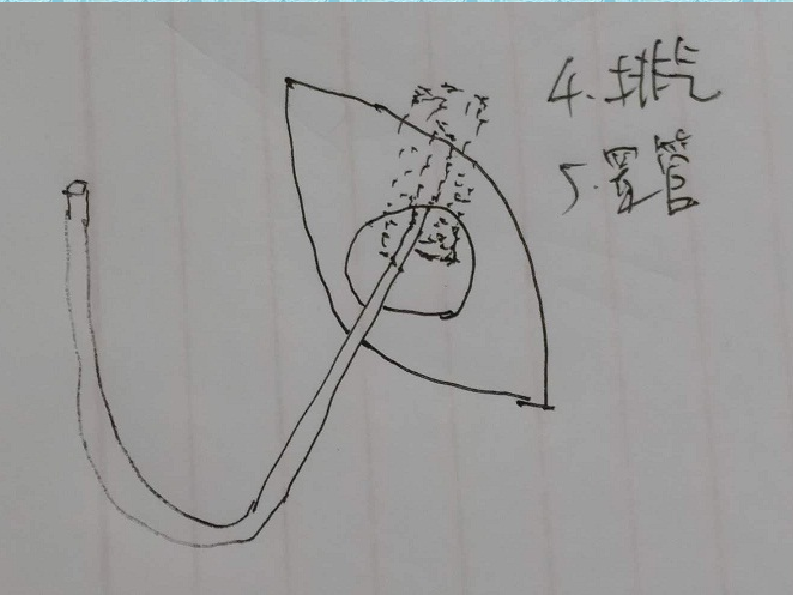 4.排气
5.置管